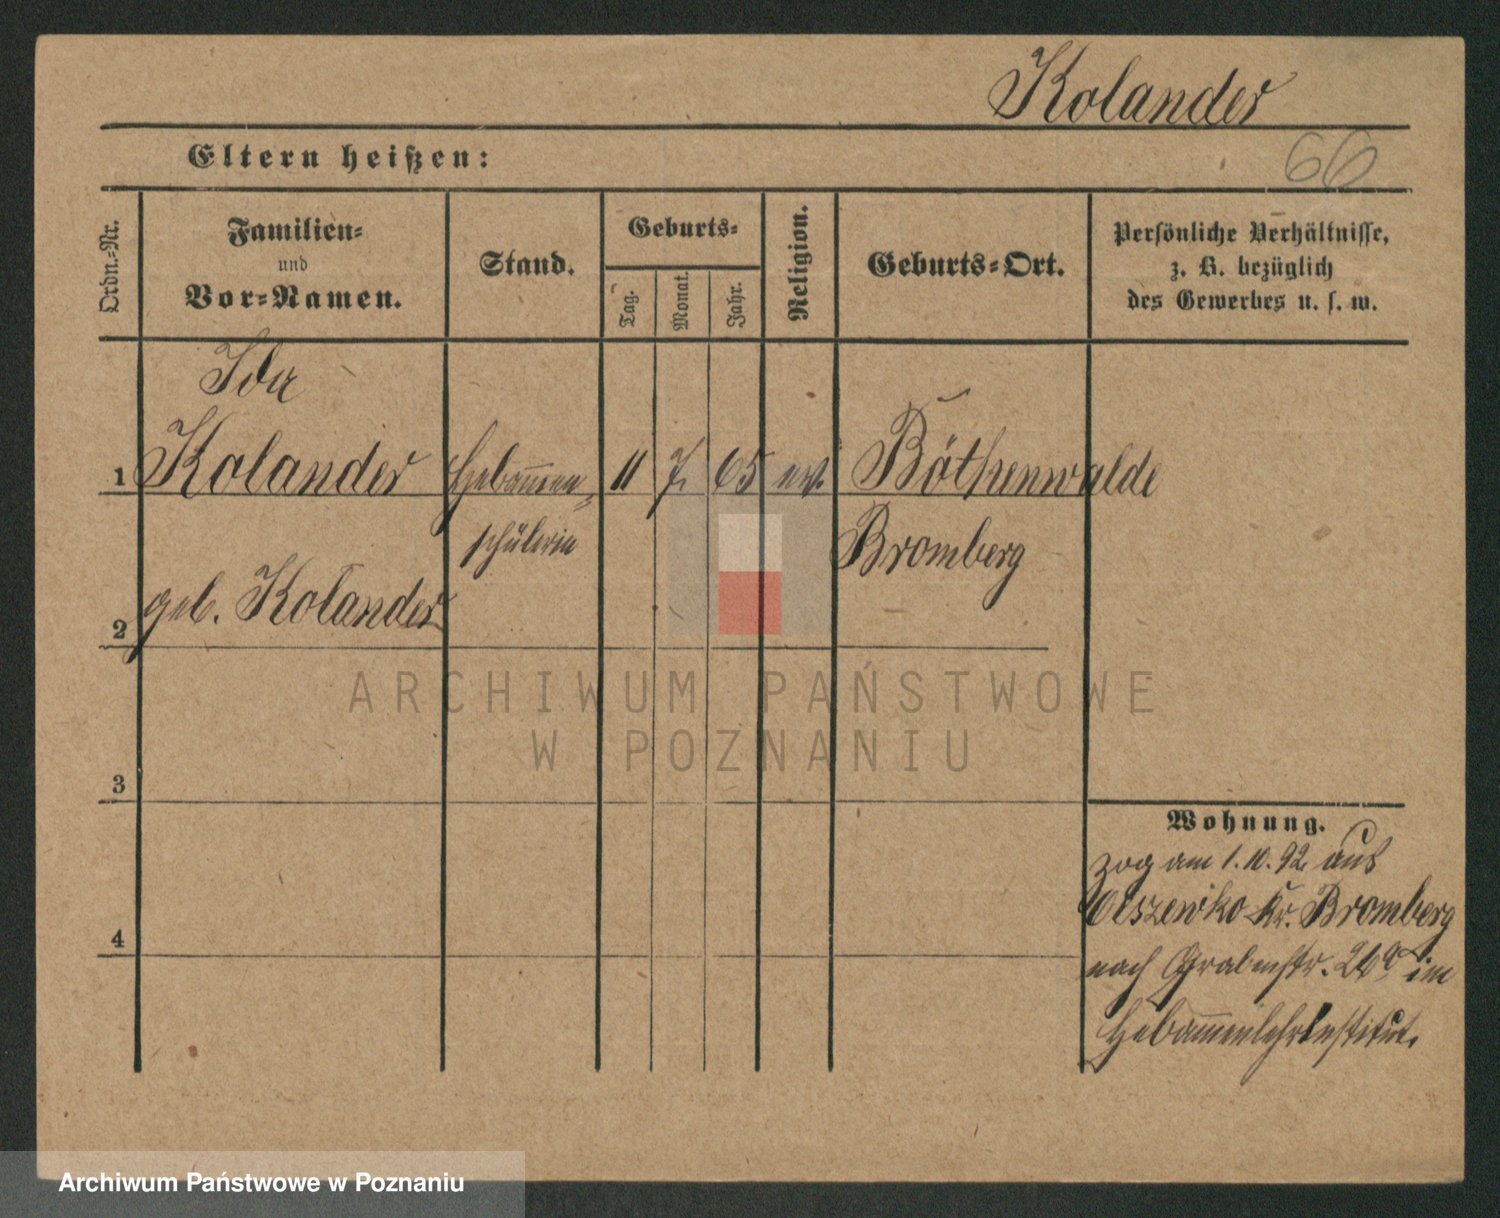 Kolander
Eltern heißen:
66
Ordn.-Nr.
Familien-
und
Vor-Namen.
Stand.
Geburts-
Tag.
Monat.
Jahr.
Religion.
Geburts-Ort.
Persönliche Verhältnisse,
z. B. bezüglich
des Gewerbes u. s. w.
Ida
1 Kolander Hebammen- 11 7. 65 ev. Böthenwalde
schülerin Bromberg
2 geb. Kolander
3
4
Wohnung.
zog am 1.10.92 aus
Olszewko Kr. Bromberg
nach Grabenstr. 26a im
Hebammenlehrinstitut.
ARCHIWUM PAŃSTWOWE
W POZNANIU
Archiwum Państwowe w Poznaniu